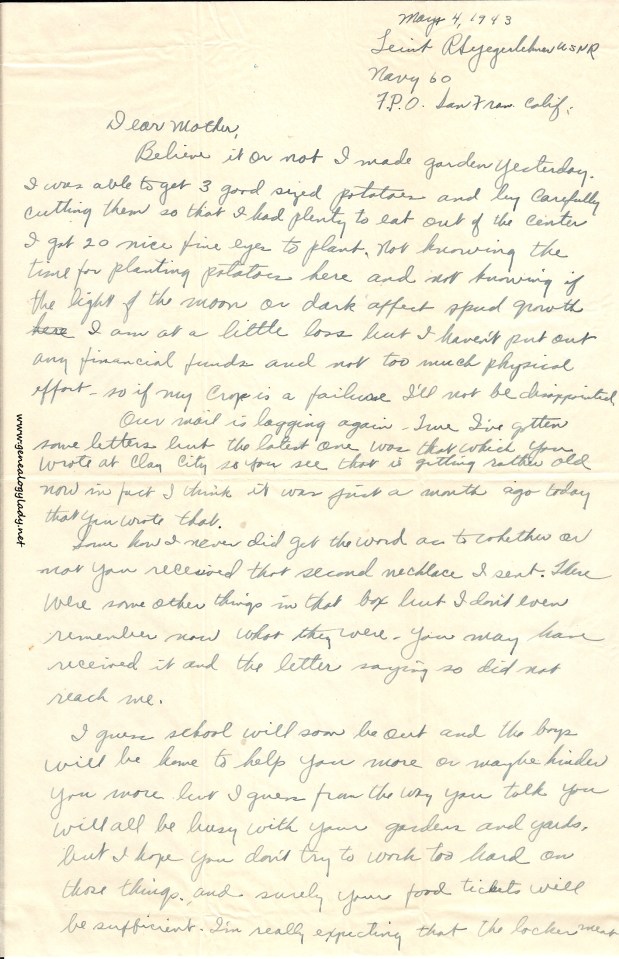 May 4, 1943
Lieut RSYegerlehner USNR
Navy 60
F.P.O. San Fran. Calif.
Dear Mother,
Believe it or not I made garden yesterday.
I was able to get 3 good sized potatoes and by carefully
cutting them so that I had plenty to eat out of the center
I got 20 nice fine eyes to plant. Not knowing the
time for planting potatoes here and not knowing if
the light of the moon or dark affect spud growth
here I am at a little loss but I haven't put out
any financial funds and not too much physical
effort - so if my crop is a failure I'll not be disappointed
Our mail is lagging again - True I've gotten
some letters but the latest one was that which you
wrote at Clay City so you see that is getting rather old
now in fact I think it was just a month ago today
that you wrote that.
Some how I never did get the word as to whether or
not you received that second necklace I sent. There
were some other things in that box but I don't even
remember now what they were - You may have
received it and the letter saying so did not
reach me.
I guess school will soon be out and the boys
will be home to help you more or maybe hinder
you more but I guess from the way you talk you
will all be busy with your gardens and yards.
but I hope you don't try to work too hard on
those things. and surely your food tickets will
be sufficient. I'm really expecting that the locker meat
www.genealogylady.net